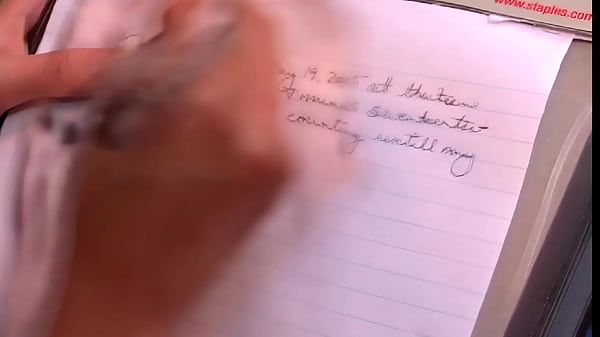 www.staples.com
19, 2005 at thirteen
minus seventeenten
counting untill my